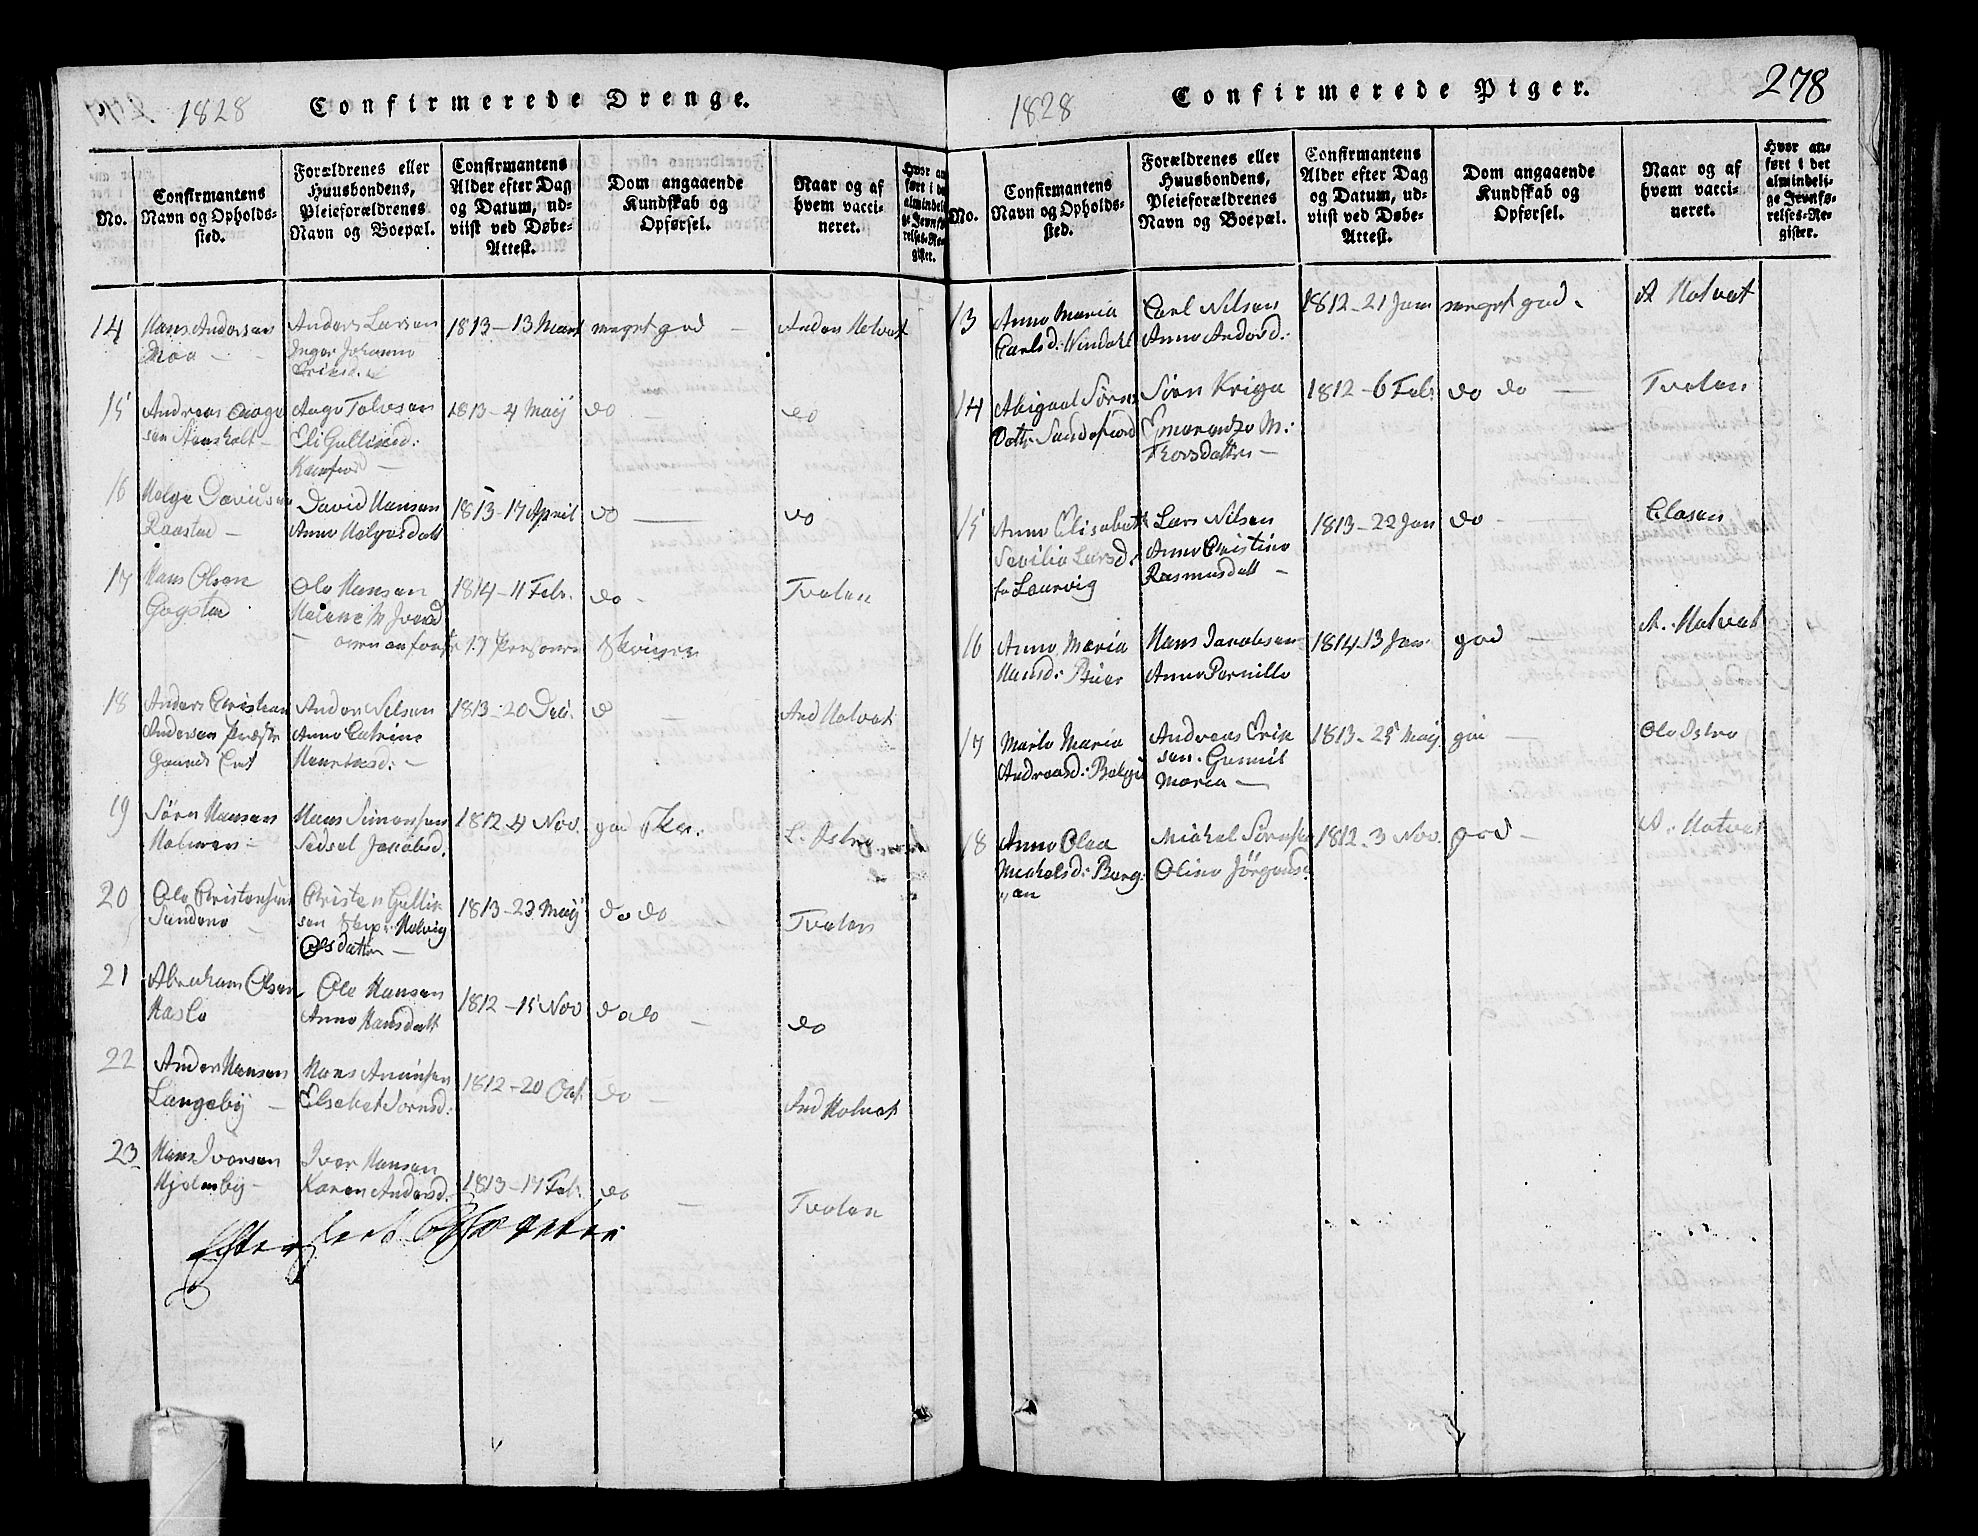 1828 Confirmerede Drenge.
No.
Confirmantens
Navn og Opholds-
sted.
Forældrenes eller
Huusbondens,
Pleieforældrenes
Navn og Boepæl.
Confirmantens
Alder efter Dag
og Datum, ud-
viist ved Døbe-
Attest.
Dom angaaende
Kundskab og
Opførsel.
Naar og af
hvem vacci-
neret.
Hvor an
ført i de
almindeli
ge Jevnfø
relses-Re
gister.
14 Hans Andersen
Moa -
Anders Larsen
Inger Johanne
1813-13 Marts
meget god -
Anders Holvat
15 Andreas Aage
sen Stensholt -
Aage Tolvsen
Eli Gullixsd:
1813-4 Maij
do
do
16 Helge Davidsen
Raastad -
David Hansen
Anne Helgesdatt
1813-17 April
do
do
17 Hans Olsen
Gogstad
Ole Hansen
Helene M Iversd
1814-11 Febr.
do -
Tvelen
17 Personer
18 Anders Christian
Andersen Præste
Anders Nilsen
Anne Catrine
1813-20 Dec.
d -
And Holvat
19 Søren Hansen
Hans Simonsen
Sedsel Jacobsd.
1812 4 Nov.
god
L. Istre
20 Ole Christensen
Sundene -
Christen Gullik
sen Helvig
Olsdatter -
1813-23 Maij
do do
Tvelen
21 Abraham Olsen
Hasle
Ole Hansen
Anne Hansdatt
1812-15 Nov
do do -
do
22 Anders Hansen
Langeby -
Hans
Elsebet Sørensd:
1812-20 Oct.
do -
And Holvat
23 Hans Iversen
Hjelmby -
Iver Hansen
Karen Andersd.
1813-17 Feb.
do -
Tvelen
1828 Confirmerede Piger. 278
No.
Confirmantens
Navn og Opholds-
sted.
Forældrenes eller
Huusbondens,
Pleieforældrenes
Navn og Boepæl.
Confirmantens
Alder efter Dag
og Datum, ud-
viist ved Døbe-
Attest.
Dom angaaende
Kundskab og
Opførsel.
Naar og af
hvem vacci-
neret.
Hvor an-
ført i det
almindeli-
ge Jevnfø-
relses-Re-
gister.
13 Anne Maria
Carlsd: Vindahl
Carl Nilsen
Anne Andersd:
1812-21 Jan
meget god.
A Holvat
14 Abigael Sørens
Datt: Sandefiord
Søren Kriga
Emerentze M:
Thorsdatter -
1812-6 Feb.
do do -
Tvelen
15 Anne Elisabeth
Sevilia Larsd:
fr Laurvig
Lars Nilsen
Anne Christine
Rasmusdatt -
1813-22 Jan
do -
Clasen
16 Anne Maria
Hansd: Buer
Hans Jacobsen
Anne Pernille
1814 13 Jan
god -
A. Holvat
17 Marte Maria
Andreasd:
Andreas Erik
sen. Gunnil
Maria -
1813-25 Maij
god -
Ole Istre
18 Anne Olea
Michelsd: Berg
"an
Michel Sørensen
Oline Jörgensd:
1812-3 Nov.
god -
A. Holvat